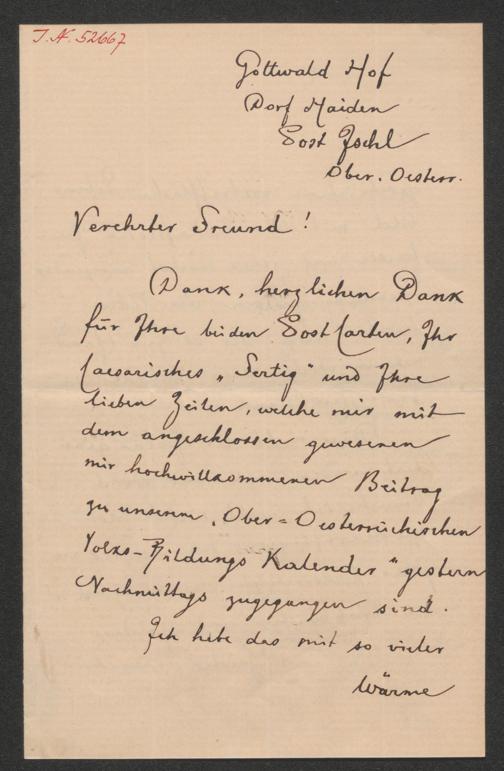 I.N. 52667
Gottwald Hof
Dorf Haiden
Post Ischl
Ober. Oesterr.
Verehrter Freund!
Dank, herzlichen Dank
für Ihre beiden Postkarten, Ihr
caesarisches „Fertig" und Ihre
lieben Zeilen, welche mir mit
dem angeschlossen gewesenen
mir hochwillkommenen Beitrag
zu unserem „Ober=Oesterreichischen
Volks-Bildungs Kalender" gestern
Nachmittags zugegangen sind.
Ich habe das mit so vieler
Wärme